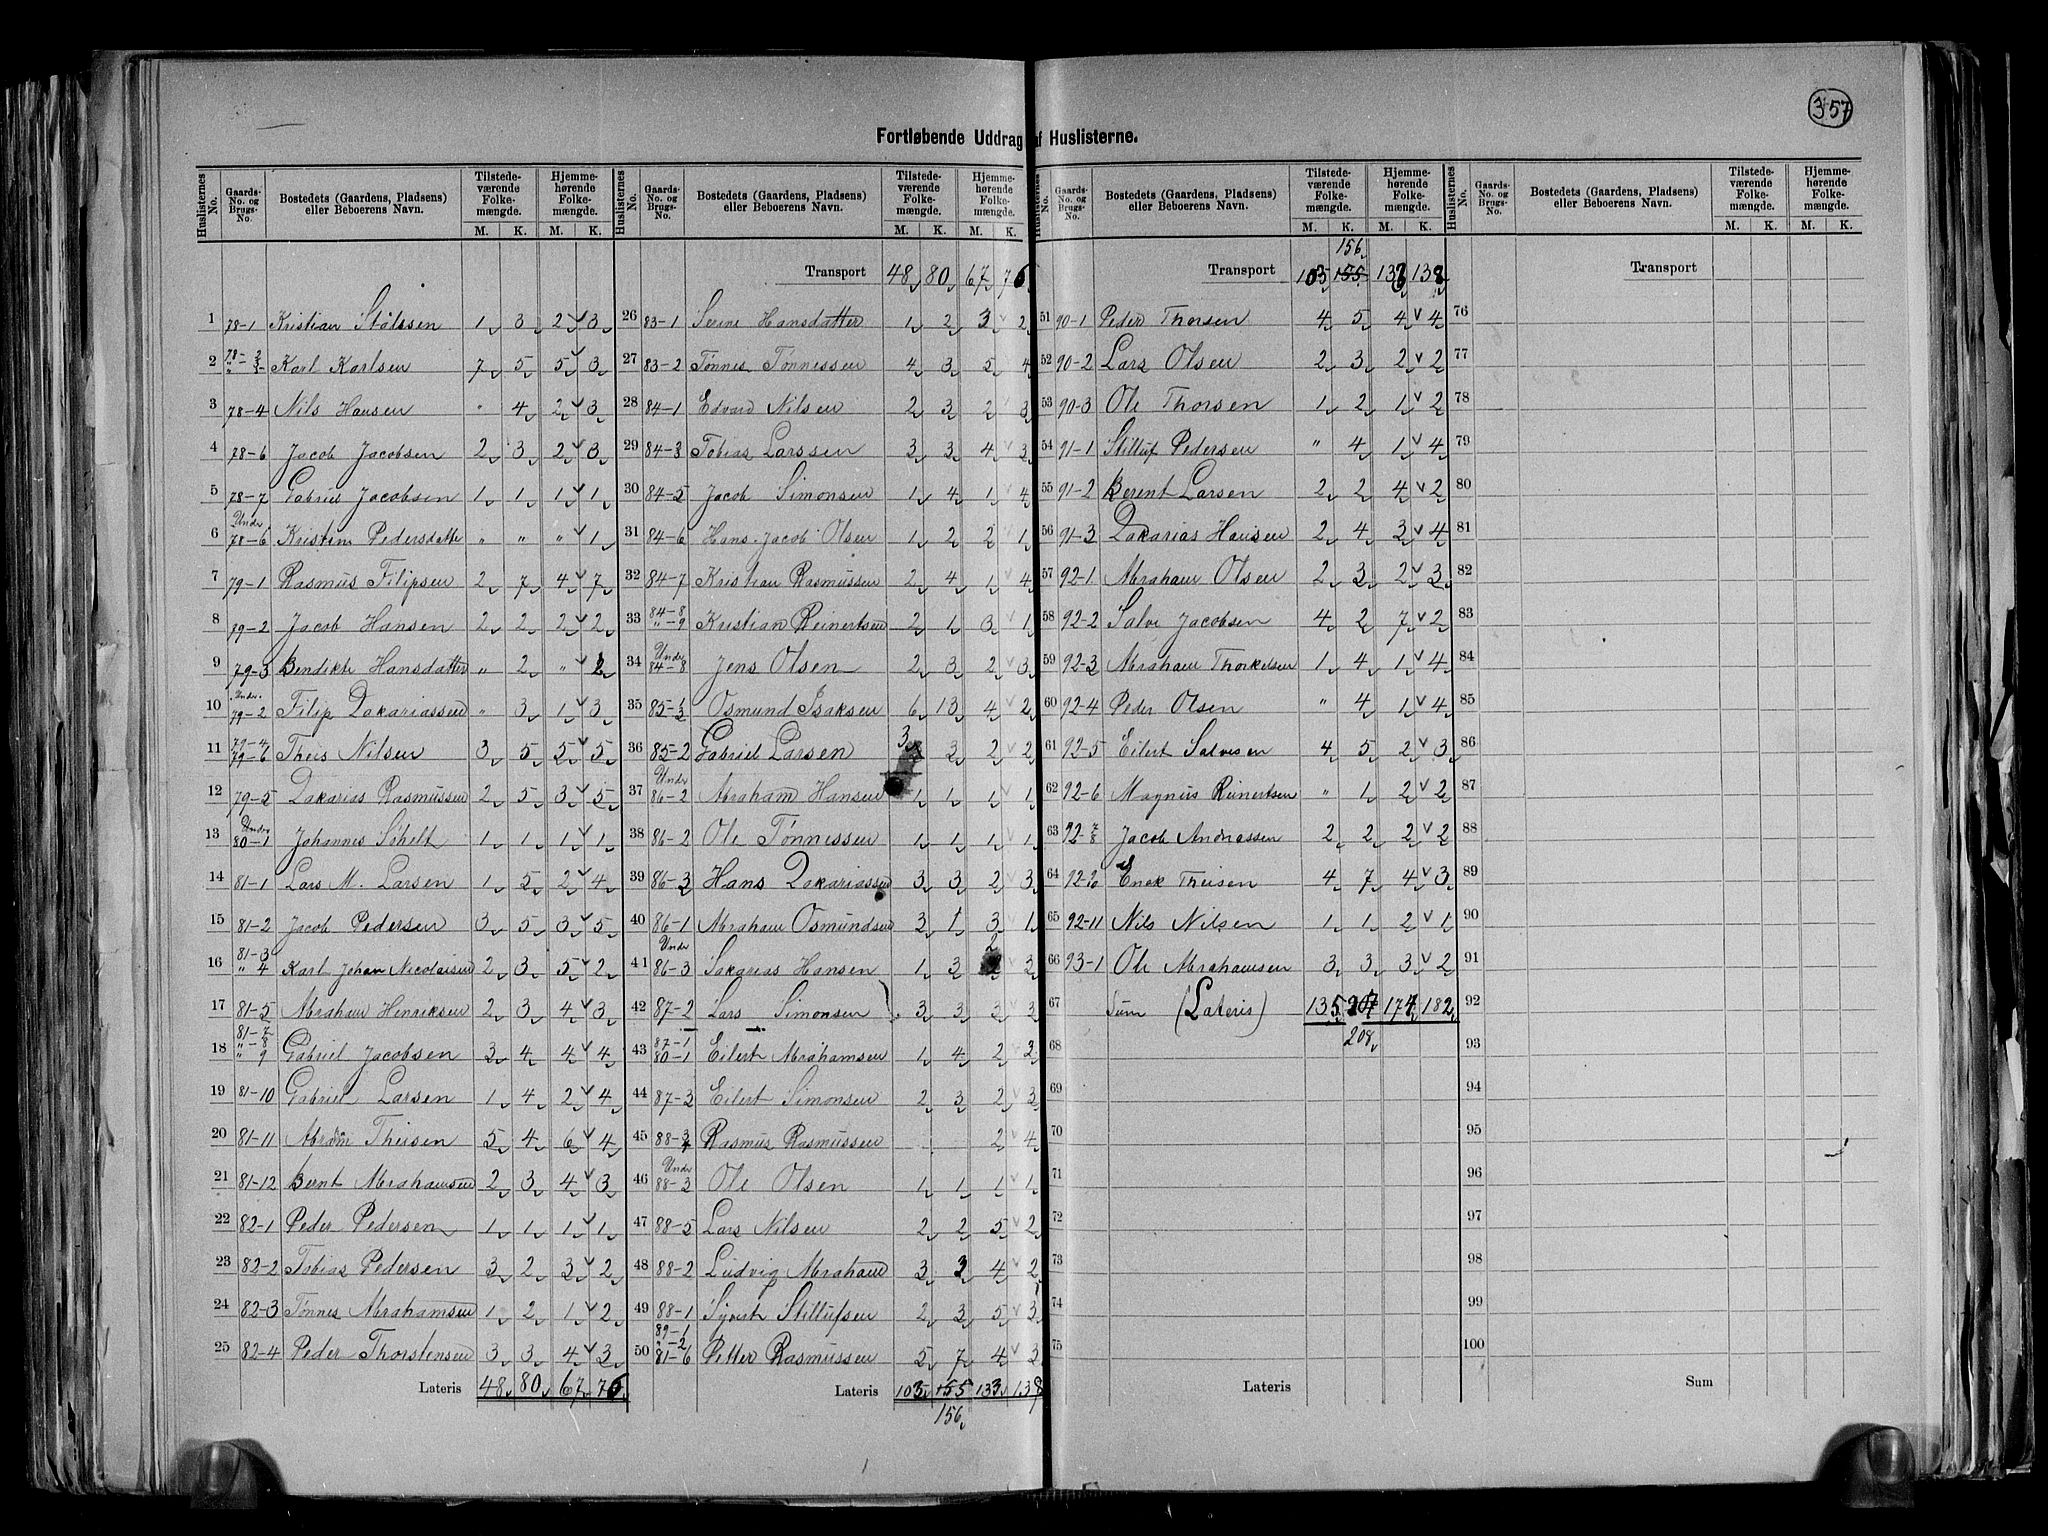 357
Fortløbende Uddrag af Huslisterne.
Huslisternes No. Gaards-No. og Brugs-No. Bostedets (Gaardens, Pladsens) eller Beboerens Navn. Tilstedeværende Folkemængde. M. K. Hjemmehørende Folkemængde. M. K.
1 78-1 Kristian Stölssen 1 3 2 3
2 78-2 " 3 Karl Karlsen 7 5 5 3
3 78-4 Nils Hansen " 4 2 3
4 78-6 Jacob Jacobsen 2 3 2 3
5 78-7 Gabriel Jacobsen 1 1 1 1
6 Under 78-6 Kristine Pedersdatter " " " 1
7 79-1 Rasmus Filipsen 2 7 4 7
8 79-2 Jacob Hansen 2 2 2 2
9 79-3 Bendikte Hansdatter " 2 " 2
10 Under 79-2 Filip Zakariassen " 3 1 3
11 79-4 79-6 Theis Nilsen 3 5 5 5
12 79-5 Zakarias Rasmussen 2 5 3 5
13 Under 80-1 Johannes 1 1 1 1
14 81-1 Lars M. Larsen 1 5 2 4
15 81-2 Jacob Pedersen 3 5 3 5
16 81-3 " 4 Karl Johan Nicolaisen 2 3 5 2
17 81-5 Abraham Henriksen 2 3 4 3
18 81-7 " 8 " 9 Gabriel Jacobsen 3 4 4 4
19 81-10 Gabriel Larsen 1 4 2 4
20 81-11 Abrahm Theisen 5 4 6 4
21 81-12 Bernt Abrahamsen 2 3 4 3
22 82-1 Peder Pedersen 1 1 1 1
23 82-2 Tobias Pedersen 3 2 3 2
24 82-3 Tønnes Abrahamsen 1 2 1 2
25 82-4 Peder Thorstensen 3 3 4 3
Lateris 48 80 67 76
Huslisternes No. Gaards-No. og Brugs-No. Bostedets (Gaardens, Pladsens) eller Beboerens Navn. Tilstedeværende Folkemængde. M. K. Hjemmehørende Folkemængde. M. K.
Transport 48 80 67 76
26 83-1 Serine Hansdatter 1 2 3 2
27 83-2 Tønnes Tønnessen 4 3 5 4
28 84-1 Edvard Nilsen 2 3 2 3
29 84-3 Tobias Larssen 3 3 4 3
30 84-5 Jacob Simonsen 1 4 1 4
31 84-6 Hans Jacob Olsen 1 2 2 1
32 84-7 Kristian Rasmussen 2 4 1 4
33 84-8 " -9 Kristian Reinertsen 2 1 3 1
34 Under 84-8 Jens Olsen 2 3 2 3
35 Osmund Isaksen 6 13 4 2
36 85-2 Gabriel Larsen 3 3 2 2
37 Under 86-2 Abraham Hansen 1 1 1 1
38 86-2 Ole Tønnessen 1 1 1 1
39 86-3 Hans Zakariassen 3 3 2 3
40 86-1 Abraham Osmundsen 3 1 3 1
41 Under 86-3 Sakarias Hansen 1 3 2 3
42 87-2 Lars Simonsen 3 3 3 3
43 87-1 80-1 Eilert Abrahamsen 1 4 2 3
44 87-3 Eilert Simonsen 2 3 2 3
45 Rasmus Rasmussen 2 4
46 Under 88-3 Ole Olsen 1 1 1 1
47 88-5 Lars Nilsen 2 2 5 2
48 88-2 Ludvig Abraham 3 3 4 2
49 88-1 Sivert Stillufsen 2 3 5 3
50 89-1 " 2 81-6 Petter Rasmussen 5 7 4 3
Lateris 103 155 133 138
156
Huslisternes No. Gaards-No. og Brugs-No. Bostedets (Gaardens, Pladsens) eller Beboerens Navn. Tilstedeværende Folkemængde. M. K. Hjemmehørende Folkemængde. M. K.
156
Transport 103 155 133 138
51 90-1 Peder Thorsen 4 5 4 4
52 90-2 Lars Olsen 2 3 2 2
53 90-3 Ole Thorsen 1 2 1 2
54 91-1 Stilluf Pedersen " 4 1 4
55 91-2 Berent Larsen 2 2 4 2
56 91-3 Zakarias Hansen 2 4 3 4
57 92-1 Abraham Olsen 2 3 2 3
58 92-2 Salve Jacobsen 4 2 7 2
59 92-3 Abraham Thorkelsen 1 4 1 4
60 92-4 Peder Olsen " 4 1 4
61 92-5 Eilert Salvesen 4 5 2 3
62 92-6 Magnus Reinertsen " 1 2 2
63 92-7/8 Jacob Andreassen 2 2 2 2
64 Enok Theisen 4 7 4 3
65 92-11 Nils Nilsen 1 1 2 1
66 93-1 Ole Abrahamsen 3 3 3 2
67 Sum (Lateris) 135 207 174 182
68 208
69
70
71
72
73
74
75
Lateris
Huslisternes No. Gaards-No. og Brugs-No. Bostedets (Gaardens, Pladsens) eller Beboerens Navn. Tilstedeværende Folkemængde. M. K. Hjemmehørende Folkemængde. M. K.
Transport
76
77
78
79
80
81
82
83
84
85
86
87
88
89
90
91
92
93
94
95
96
97
98
99
100
Sum